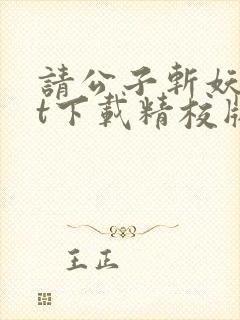 請公子斬妖
t下載精校版
王正